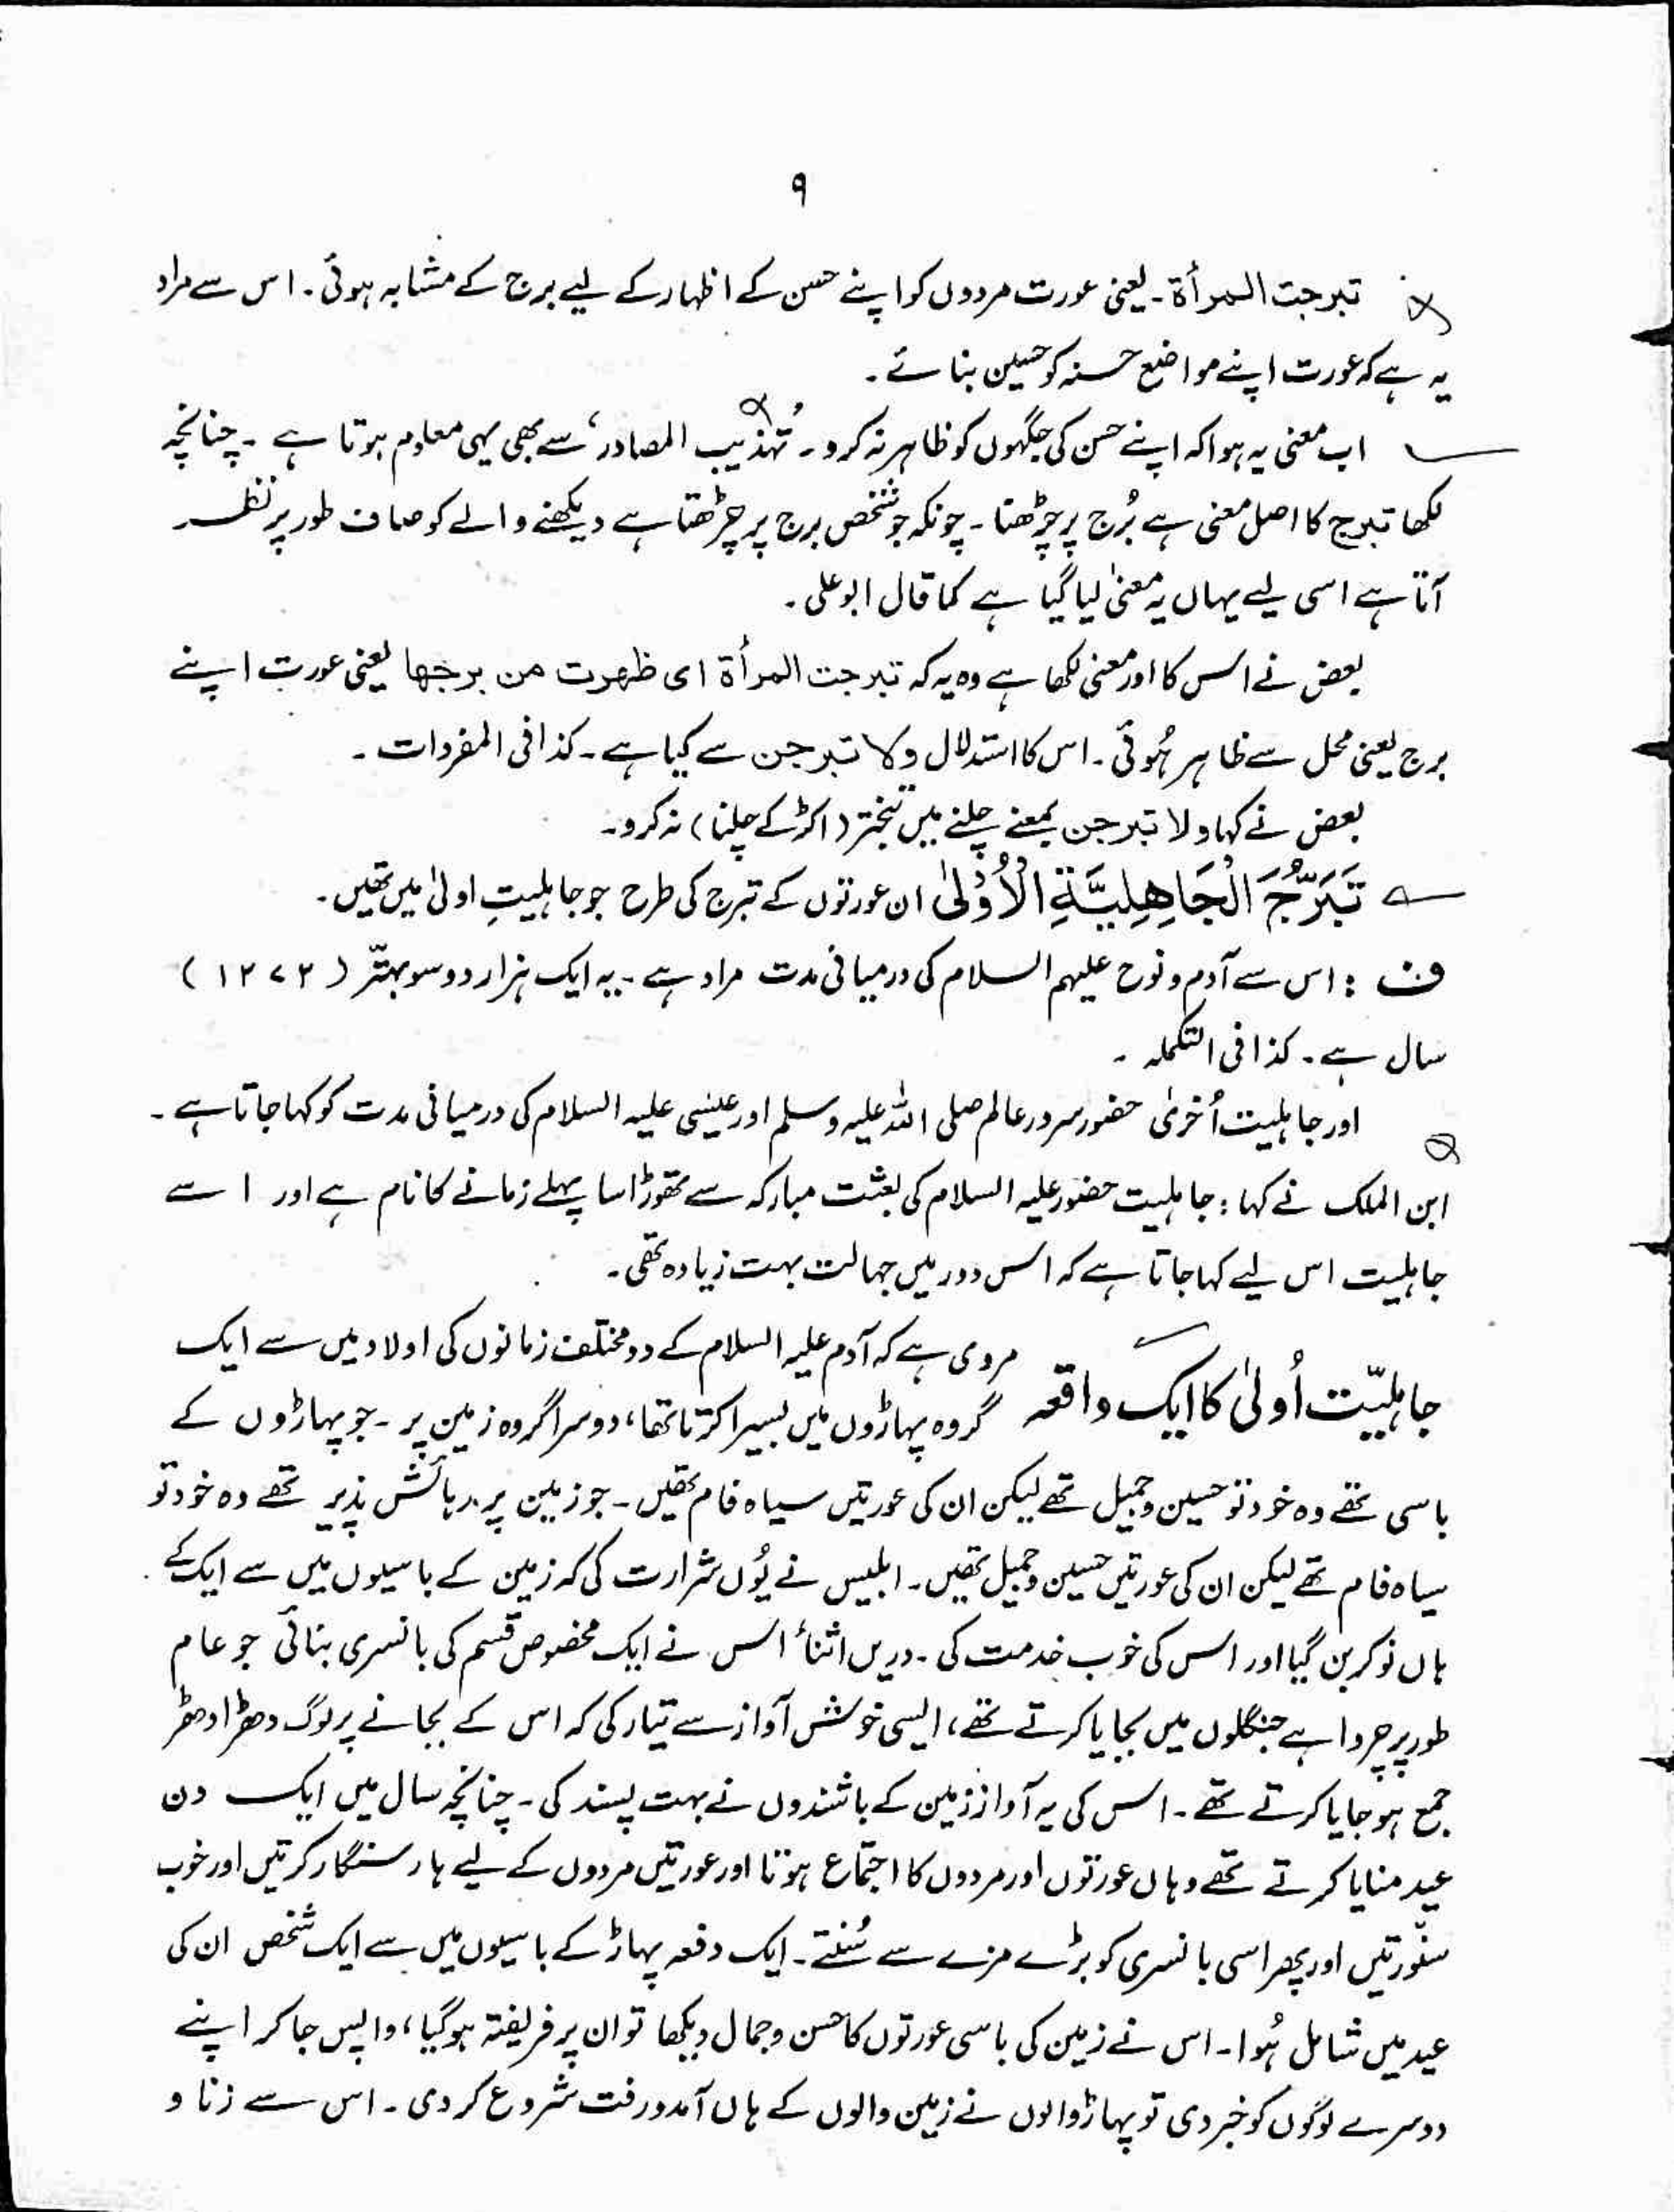 ۹
تبرجت المرأة۔ یعنی عورت مردوں کو اپنے حسن کے اظہار کے لیے برج کے مشابہ ہوئی۔ اس سے مراد
یہ ہے کہ عورت اپنے مواضع حسنہ کو حسین بنائے۔
اب معنی یہ ہوا کہ اپنے حسن کی جگہوں کو ظاہر نہ کرو۔ ’تہذیب المصادر‘ سے بھی یہی معلوم ہوتا ہے۔ چنانچہ
لکھا تبرج کا اصل معنی ہے بُرج پر چڑھنا۔ چونکہ جو شخص برج پر چڑھتا ہے دیکھنے والے کو صاف طور پر نظر
آتا ہے اسی لیے یہاں یہ معنیٰ لیا گیا ہے کما قال ابو علی۔
بعض نے اس کا اور معنی لکھا ہے وہ یہ کہ تبرجت المرأة ای ظهرت من برجها یعنی عورت اپنے
برج یعنی محل سے ظاہر ہُوئی۔ اس کا استدلال ولا تبرجن سے کیا ہے۔ کذا فی المفردات۔
بعض نے کہا ولا تبرجن بمعنے چلنے میں تبختر (اکڑ کے چلنا) نہ کرو۔
تَبَرُّجَ الْجَاهِلِيَّةِ الْأُوْلٰى ان عورتوں کے تبرج کی طرح جو جاہلیتِ اولیٰ میں تھیں۔
ف : اس سے آدم و نوح علیہم السلام کی درمیانی مدت مراد ہے۔ یہ ایک ہزار دو سو بہتّر (۱۲۷۲)
سال ہے۔ کذا فی التکملہ۔
اور جاہلیت اُخریٰ حضور سرور عالم صلی اللہ علیہ وسلم اور عیسٰی علیہ السلام کی درمیانی مدت کو کہا جاتا ہے۔
ابن الملک نے کہا : جاہلیت حضور علیہ السلام کی بعثت مبارکہ سے تھوڑا سا پہلے زمانے کا نام ہے اور اسے
جاہلیت اس لیے کہا جاتا ہے کہ اس دور میں جہالت بہت زیادہ تھی۔
جاہلیّت اُولیٰ کا ایک واقعہ مروی ہے کہ آدم علیہ السلام کے دو مختلف زمانوں کی اولاد میں سے ایک
گروہ پہاڑوں میں بسیرا کرتا تھا، دوسرا گروہ زمین پر۔ جو پہاڑوں کے
باسی تھے وہ خود تو حسین و جمیل تھے لیکن ان کی عورتیں سیاہ فام تھیں۔ جو زمین پر رہائش پذیر تھے وہ خود تو
سیاہ فام تھے لیکن ان کی عورتیں حسین و جمیل تھیں۔ ابلیس نے یُوں شرارت کی کہ زمین کے باسیوں میں سے ایک کے
ہاں نوکر بن گیا اور اس کی خوب خدمت کی۔ دریں اثنأ اس نے ایک مخصوص قسم کی بانسری بنائی جو عام
طور پر چرواہے جنگلوں میں بجایا کرتے تھے، ایسی خوش آواز سے تیار کی کہ اس کے بجانے پر لوگ دھڑا دھڑ
جمع ہو جایا کرتے تھے۔ اس کی یہ آواز زمین کے باشندوں نے بہت پسند کی۔ چنانچہ سال میں ایک دن
عید منایا کرتے تھے وہاں عورتوں اور مردوں کا اجتماع ہوتا اور عورتیں مردوں کے لیے ہار سنگار کرتیں اور خوب
سنورتیں اور پھر اسی بانسری کو بڑے مزے سے سُنتے۔ ایک دفعہ پہاڑ کے باسیوں میں سے ایک شخص ان کی
عید میں شامل ہُوا۔ اس نے زمین کی باسی عورتوں کا حسن و جمال دیکھا تو ان پر فریفتہ ہو گیا، واپس جا کر اپنے
دوسرے لوگوں کو خبر دی تو پہاڑ والوں نے زمین والوں کے ہاں آمد و رفت شروع کر دی۔ اس سے زنا و